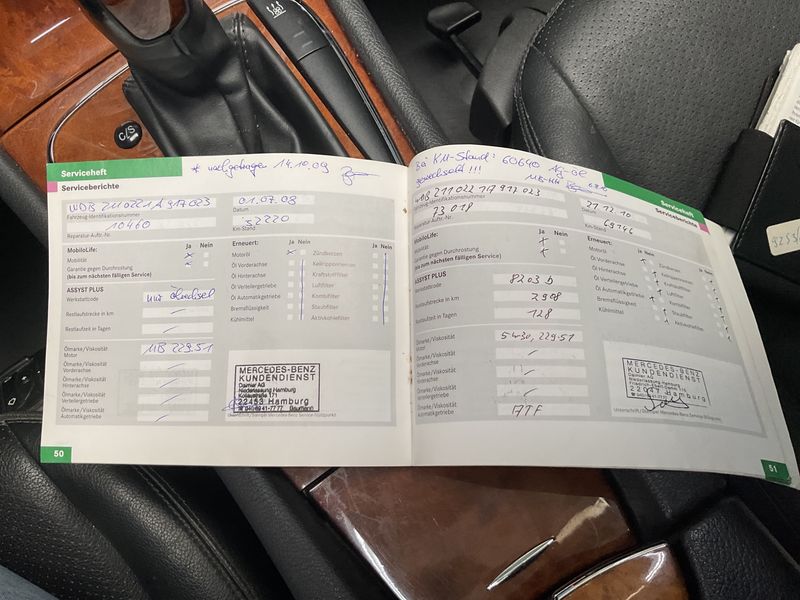 C/S
Serviceheft
Serviceberichte
* nachgetragen 14.10.09
01.07.08
Fahrzeug-Identifikationsnummer
Datum
10460
52220
Reparatur-Auftr.-Nr.
Km-Stand
MobiloLife:
Ja Nein
Mobilität
Garantie gegen Durchrostung
(bis zum nächsten fälligen Service)
ASSYST PLUS
Werkstattcode
nur Ölwechsel
Restlaufstrecke in km
Restlaufzeit in Tagen
Ölmarke/Viskosität
Motor
MB 229.51
Ölmarke/Viskosität
Vorderachse
Ölmarke/Viskosität
Hinterachse
Ölmarke/Viskosität
Verteilergetriebe
Ölmarke/Viskosität
Automatikgetriebe
Erneuert:
Ja Nein
Ja Nein
Motoröl
Zündkerzen
Öl Vorderachse
Keilrippenriemen
Öl Hinterachse
Kraftstofffilter
Öl Verteilergetriebe
Luftfilter
Öl Automatikgetriebe
Kombifilter
Bremsflüssigkeit
Staubfilter
Kühlmittel
Aktivkohlefilter
MERCEDES-BENZ
KUNDENDIENST
Daimler AG
Niederlassung Hamburg
Kollaustraße 171
22453 Hamburg
50
bei KM-Stand: 60640
gewechselt!!!
Serviceheft
Serviceberichte
Fahrzeug-Identifikationsnummer
21.12.10
Datum
73 018
69746
Reparatur-Auftr.-Nr.
Km-Stand
MobiloLife:
Ja Nein
Mobilität
Garantie gegen Durchrostung
(bis zum nächsten fälligen Service)
ASSYST PLUS
Werkstattcode
8203 b
Restlaufstrecke in km
2908
Restlaufzeit in Tagen
128
Ölmarke/Viskosität
Motor
5W30, 229.51
Ölmarke/Viskosität
Vorderachse
Ölmarke/Viskosität
Hinterachse
Ölmarke/Viskosität
Verteilergetriebe
Ölmarke/Viskosität
Automatikgetriebe
ATF
Erneuert:
Ja Nein
Ja Nein
Motoröl
Zündkerzen
Öl Vorderachse
Keilrippenriemen
Öl Hinterachse
Kraftstofffilter
Öl Verteilergetriebe
Luftfilter
Öl Automatikgetriebe
Kombifilter
Bremsflüssigkeit
Staubfilter
Kühlmittel
Aktivkohlefilter
MERCEDES-BENZ
KUNDENDIENST
Niederlassung Hamburg
22453 Hamburg
51